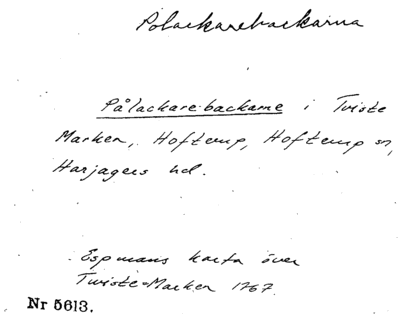 Polackarebackarna
Pålackare backarne i Twiste
Marken, Hofterup, Hofterup sn,
Harjagers hd.
Espmans karta över
Twiste-Marken 1767.
Nr 5613.